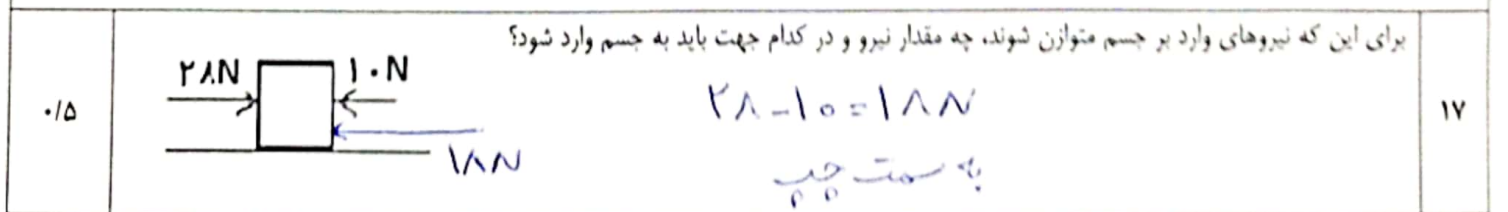 ۱۷
برای این که نیروهای وارد بر جسم متوازن شوند، چه مقدار نیرو و در کدام جهت باید به جسم وارد شود؟
۲۸-۱۰=۱۸N
به سمت چپ
۲۸N
۱۰N
۱۸N
۰/۵